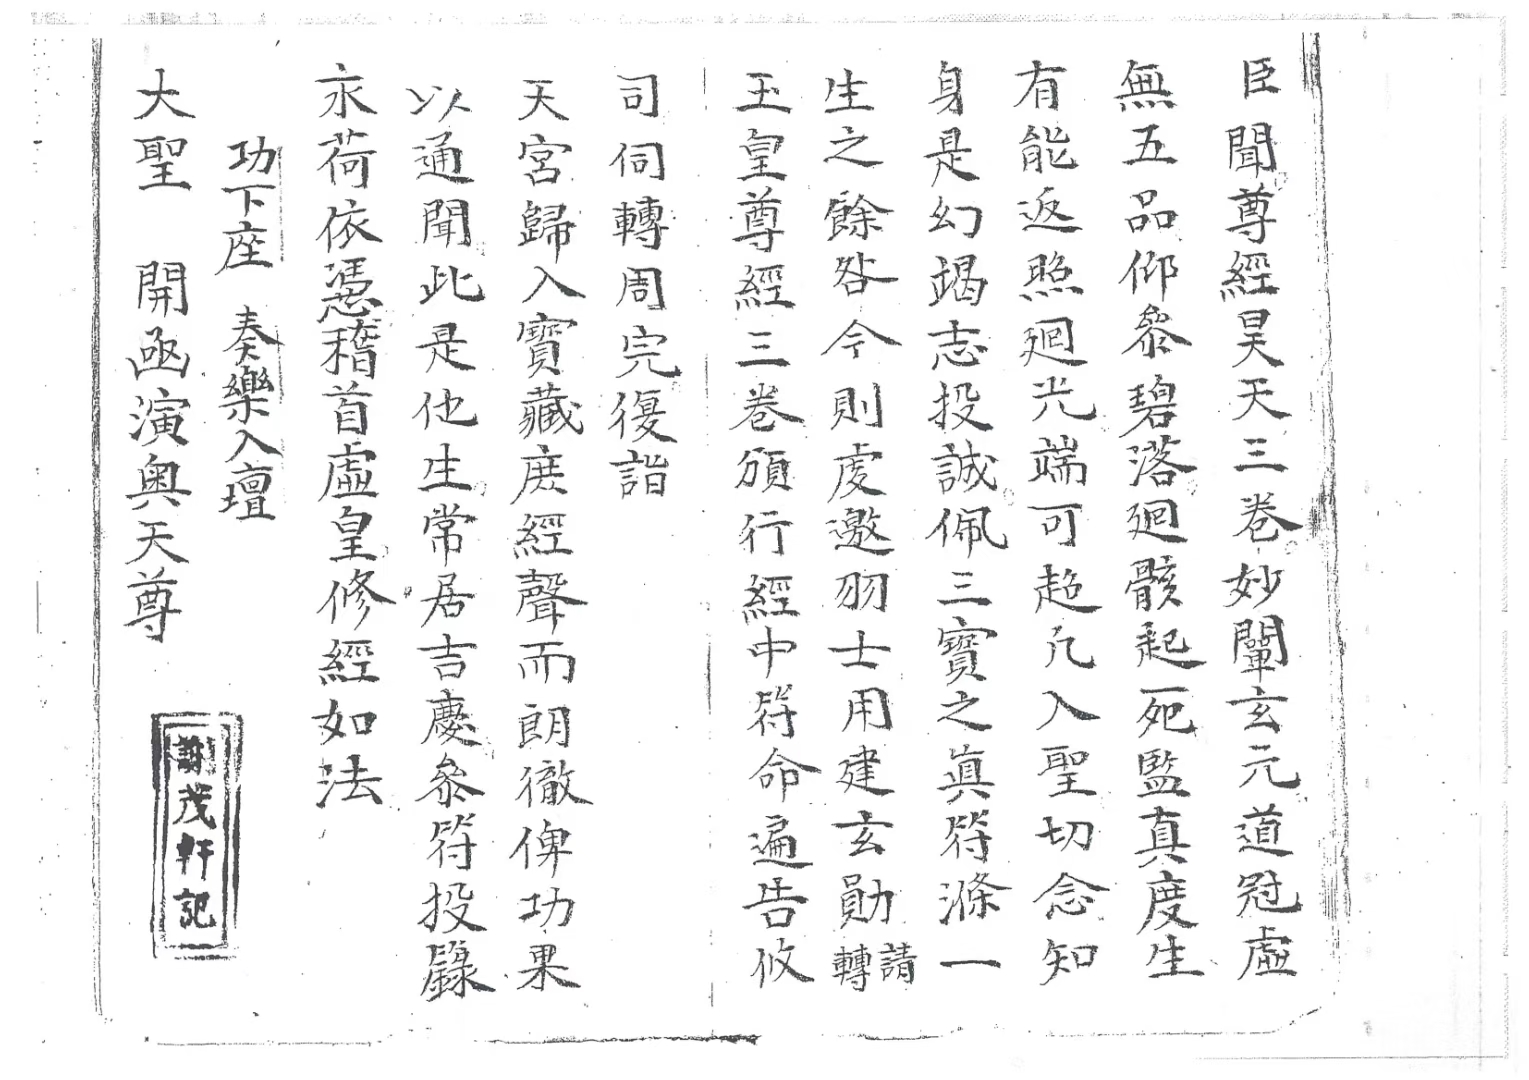 臣聞尊經昊天三卷妙闡玄元道冠虛
無五品仰叅碧落廻骸起死監真度生
有能返照廻光端可超凢入聖切念知
身是幻竭志投誠佩三寶之眞符滌一
生之餘咎今則虔邀羽士用建玄勛請轉
玉皇尊經三卷頒行經中符命遍告攸
司伺轉周完復詣
天宮歸入寶藏庶經聲而朗徹俾功果
以通聞此是他生常居吉慶叅符投籙
永荷依憑稽首虛皇修經如法
功下座 奏樂入壇
大聖 開函演奧天尊
謝茂軒記